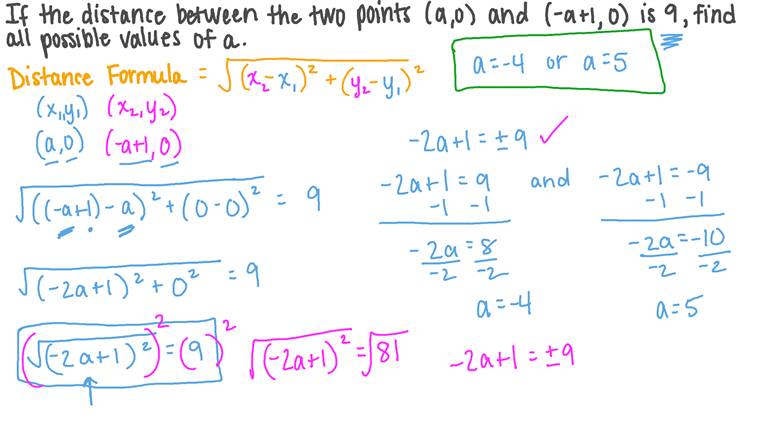 If the distance between the two points (a,0) and (-a+1, 0) is 9, find
all possible values of a.
Distance Formula = √(x₂-x₁)² + (y₂-y₁)²
a=-4 or a=5
(x₁,y₁) (x₂,y₂)
(a,0) (-a+1, 0)
√((-a+1)-a)² + (0-0)² = 9
√(-2a+1)² + 0² = 9
(√(-2a+1)²)² = (9)²
√(-2a+1)² = √81
-2a+1 = ±9
-2a+1 = ±9 ✓
-2a+1 = 9 and -2a+1 = -9
-1 -1 -1 -1
-2a = 8 -2a = -10
-2 -2 -2 -2
a=-4 a=5